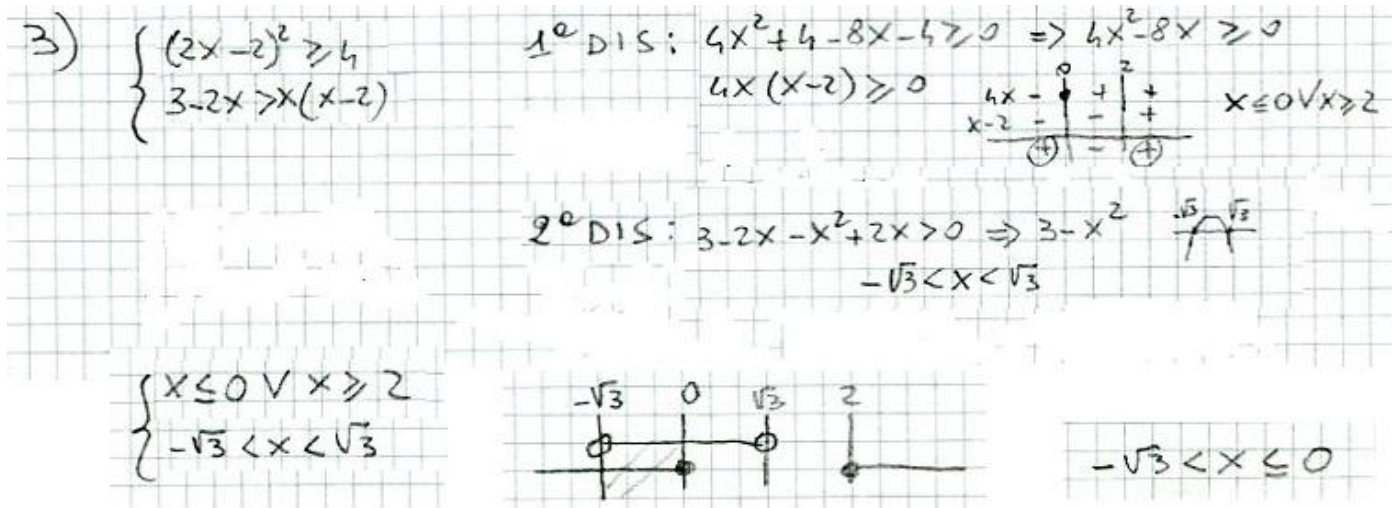 3) { (2x-2)² ≥ 4
3-2x > x(x-2)
1ª DIS: 4x²+4-8x-4 ≥ 0 => 4x²-8x ≥ 0
4x(x-2) ≥ 0
0 2
4x - + +
x-2 - - +
+ - +
x ≤ 0 V x ≥ 2
2ª DIS: 3-2x-x²+2x > 0 => 3-x²
-√3 √3
-√3 < x < √3
{ x ≤ 0 V x ≥ 2
-√3 < x < √3
-√3 0 √3 2
-√3 < x ≤ 0